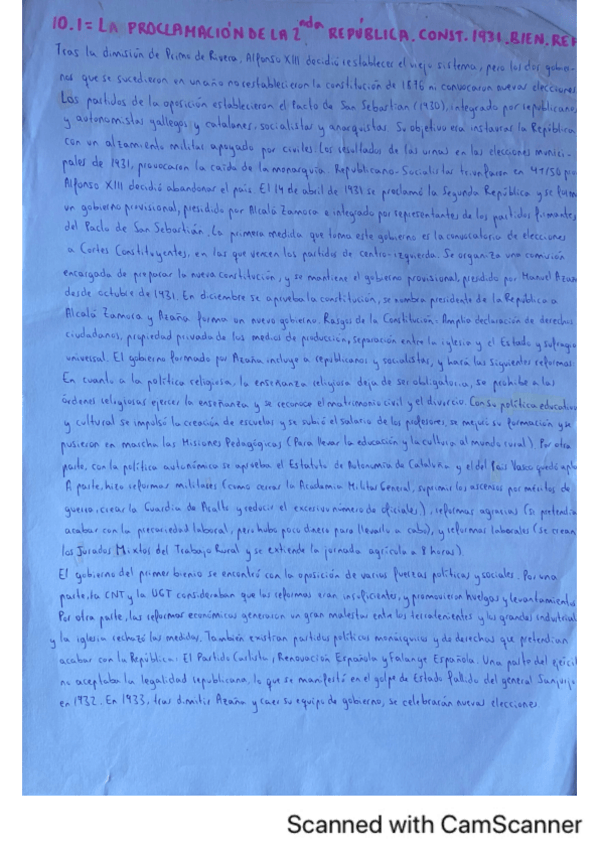 10.1= LA PROCLAMACIÓN DE LA 2nda REPÚBLICA. CONST. 1931. BIEN. REF
Tras la dimisión de Primo de Rivera, Alfonso XIII decidió restablecer el viejo sistema, pero los dos gobier-
nos que se sucedieron en un año no establecieron la constitución de 1876 ni convocaron nuevas elecciones
Los partidos de la oposición establecieron el Pacto de San Sebastián (1930), integrado por republicano
y autonomistas gallegos y catalanes, socialistas y anarquistas. Su objetivo era instaurar la República
con un alzamiento militar apoyado por civiles. Los resultados de las urnas en las elecciones munici-
pales de 1931, provocaron la caída de la monarquía. Republicano-Socialistas triunfaron en 41/50 pro
Alfonso XIII decidió abandonar el país. El 14 de abril de 1931 se proclamó la Segunda República y se form
un gobierno provisional, presidido por Alcalá Zamora e integrado por representantes de los partidos firmantes
del Pacto de San Sebastián. La primera medida que toma este gobierno es la convocatoria de elecciones
a Cortes Constituyentes, en las que vencen los partidos de centro-izquierda. Se organiza una comisión
encargada de preparar la nueva constitución, y se mantiene el gobierno provisional, presidido por Manuel Azañ
desde octubre de 1931. En diciembre se aprueba la constitución, se nombra presidente de la República a
Alcalá Zamora y Azaña forma un nuevo gobierno. Rasgos de la Constitución: Amplia declaración de derechos
ciudadanos, propiedad privada de los medios de producción, separación entre la iglesia y el Estado y sufragio
universal. El gobierno formado por Azaña incluye a republicanos y socialistas, y hará las siguientes reformas:
En cuanto a la política religiosa, la enseñanza religiosa deja de ser obligatoria, se prohíbe a las
órdenes religiosas ejercer la enseñanza y se reconoce el matrimonio civil y el divorcio. Con su política educativa
y cultural se impulsó la creación de escuelas y se subió el salario de los profesores, se mejoró su formación y se
pusieron en marcha las Misiones Pedagógicas (Para llevar la educación y la cultura al mundo rural). Por otra
parte, con la política autonómica se aprueba el Estatuto de Autonomía de Cataluña y el del País Vasco quedó apla
A parte, hizo reformas militares (como cerrar la Academia Militar General, suprimir los ascensos por méritos de
guerra, crear la Guardia de Asalto y reducir el excesivo número de oficiales), reformas agrarias (se pretendía
acabar con la precariedad laboral, pero hubo poco dinero para llevarlo a cabo), y reformas laborales (se crean
los Jurados Mixtos del Trabajo Rural y se extiende la jornada agrícola a 8 horas).
El gobierno del primer bienio se encontró con la oposición de varias fuerzas políticas y sociales. Por una
parte, la CNT y la UGT consideraban que las reformas eran insuficientes, y promovieron huelgas y levantamientos
Por otra parte, las reformas económicas generaron un gran malestar entre los terratenientes y los grandes industrial
y la iglesia rechazó las medidas. También existían partidos políticos monárquicos y de derechas que pretendían
acabar con la República: El Partido Carlista, Renovación Española y Falange Española. Una parte del ejércit
no aceptaba la legalidad republicana, lo que se manifestó en el golpe de Estado fallido del general Sanjurjo
en 1932. En 1933, tras dimitir Azaña y caer su equipo de gobierno, se celebrarán nuevas elecciones.
Scanned with CamScanner